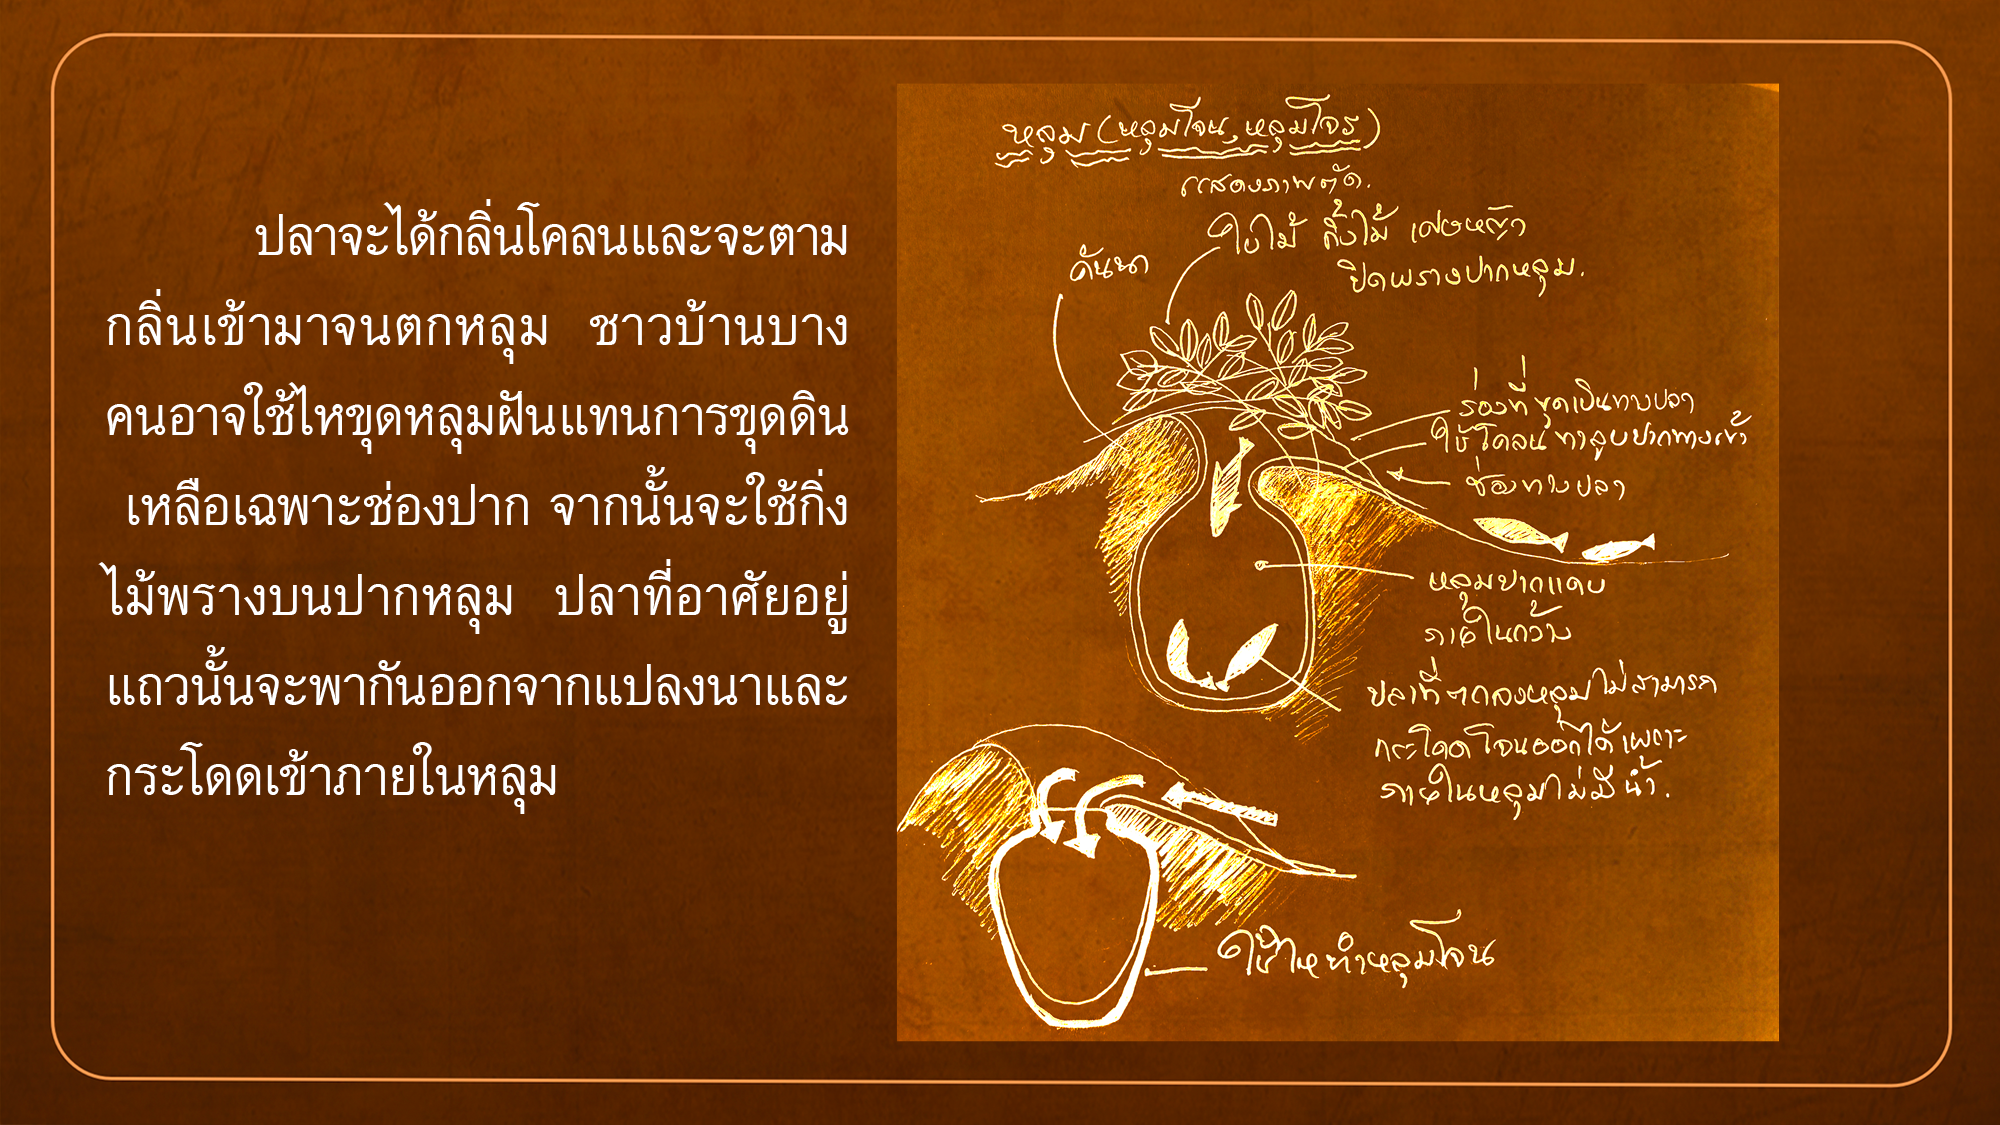 ปลาจะได้กลิ่นโคลนและจะตาม
กลิ่นเข้ามาจนตกหลุม ชาวบ้านบาง
คนอาจใช้ไหขุดหลุมฝันแทนการขุดดิน
เหลือเฉพาะช่องปาก จากนั้นจะใช้กิ่ง
ไม้พรางบนปากหลุม ปลาที่อาศัยอยู่
แถวนั้นจะพากันออกจากแปลงนาและ
กระโดดเข้าภายในหลุม
หลุม (หลุมโจน, หลุมโจร)
แสดงภาพตัด.
ใบไม้ กิ่งไม้ เศษหญ้า
ปิดพรางปากหลุม.
คันนา
ร่องที่ขุดเป็นทางปลา
ใช้โคลนทาลูบปากทางเข้า
ช่องทางปลา
หลุมปากแคบ
ภายในกว้าง
ปลาที่ตกลงหลุมไม่สามารถ
กระโดดโจนออกได้เพราะ
ภายในหลุมไม่มีน้ำ.
ใช้ไหทำหลุมโจน